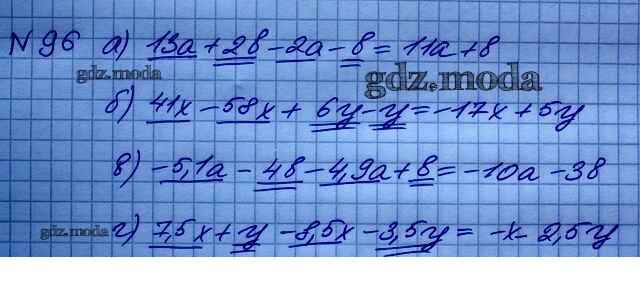 N 96 а) 13a + 2b - 2a - b = 11a + b
gdz.moda
gdz.moda
б) 41x - 58x + 6y - y = -17x + 5y
в) -5,1a - 4b - 4,9a + b = -10a - 3b
gdz.moda
г) 7,5x + y - 8,5x - 3,5y = -x - 2,5y